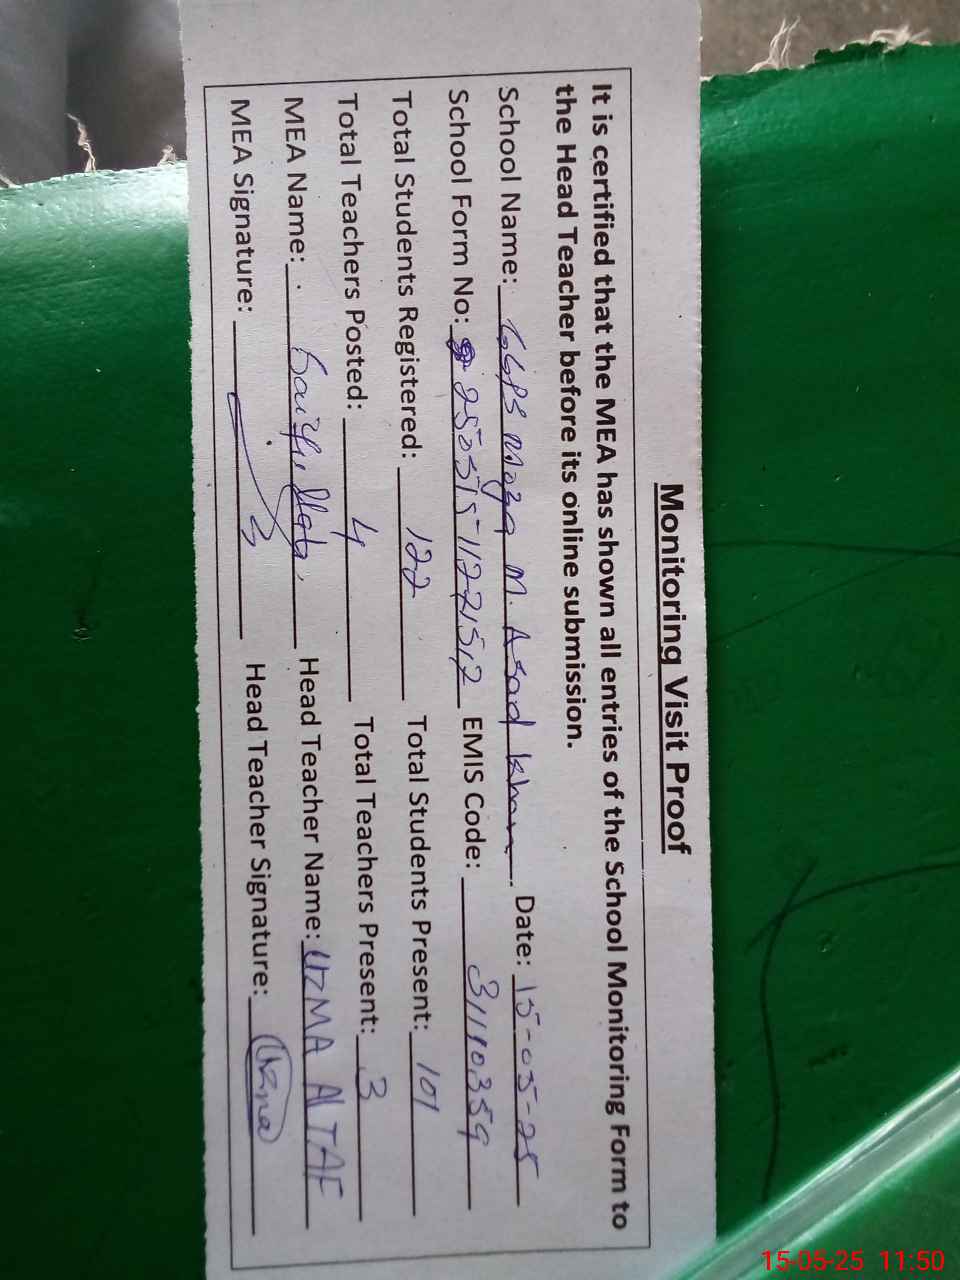 Monitoring Visit Proof
It is certified that the MEA has shown all entries of the School Monitoring Form to
the Head Teacher before its online submission.
School Name: GGPS Moza M. Asad Khan Date: 15-05-25
School Form No: 25051511221512 EMIS Code: 31110359
Total Students Registered: 122 Total Students Present: 101
Total Teachers Posted: 4 Total Teachers Present: 3
MEA Name: Head Teacher Name: UZMA ALTAF
MEA Signature: Head Teacher Signature: Uzma
15-05-25 11:50